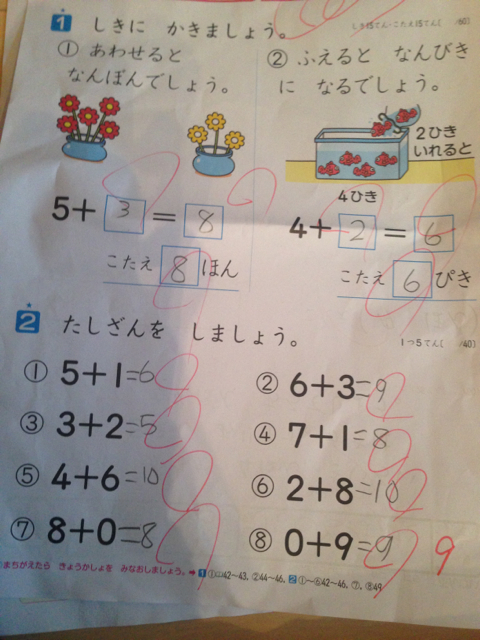 1 しきに かきましょう。
しき15てん・こたえ15てん( /60)
① あわせると
なんぼんでしょう。
5+3=8
こたえ 8 ほん
② ふえると なんびき
に なるでしょう。
2ひき
いれると
4ひき
4+2=6
こたえ 6 ぴき
2 たしざんを しましょう。
1つ5てん( /40)
① 5+1=6
② 6+3=9
③ 3+2=5
④ 7+1=8
⑤ 4+6=10
⑥ 2+8=10
⑦ 8+0=8
⑧ 0+9=9 9
まちがえたら きょうかしょを みなおしましょう。➡ 1 ①42〜43、②44〜46、2 ①〜⑥42〜46、⑦、⑧49